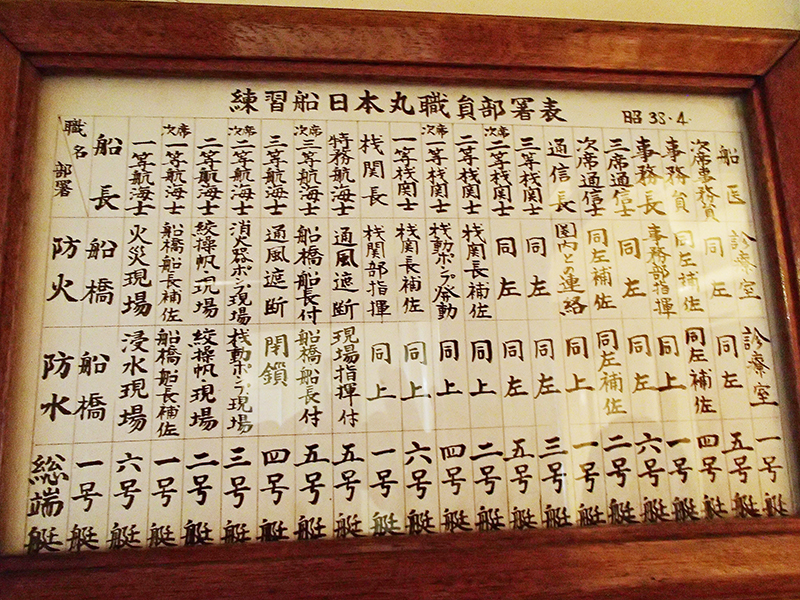 練習船日本丸職員部署表 昭38・4
職名 部署 船長 一等航海士 次席一等航海士 二等航海士 次席二等航海士 三等航海士 次席三等航海士 特務航海士 機関長 一等機関士 次席一等機関士 二等機関士 次席二等機関士 三等機関士 通信長 次席通信士 三席通信士 事務長 事務員 次席事務員 船医
防火 船橋 火災現場 船橋船長補佐 絞操帆・現場 消火器ポンプ現場 通風遮断 船橋船長付 通風遮断 機関部指揮 機関長補佐 機動ポンプ発動 機関長補佐 同左 同左 内との連絡 同左補佐 同左 事務部指揮 同左補佐 同左 診療室
防水 船橋 浸水現場 船橋船長補佐 絞操帆・現場 機動ポンプ現場 閉鎖 船橋船長付 現場指揮付 同上 同上 同上 同上 同左 同左 同上 同左補佐 同左 同上 同左補佐 同左 診療室
総端艇 一号艇 六号艇 一号艇 二号艇 三号艇 四号艇 五号艇 五号艇 一号艇 六号艇 四号艇 二号艇 五号艇 三号艇 一号艇 二号艇 六号艇 一号艇 四号艇 五号艇 一号艇